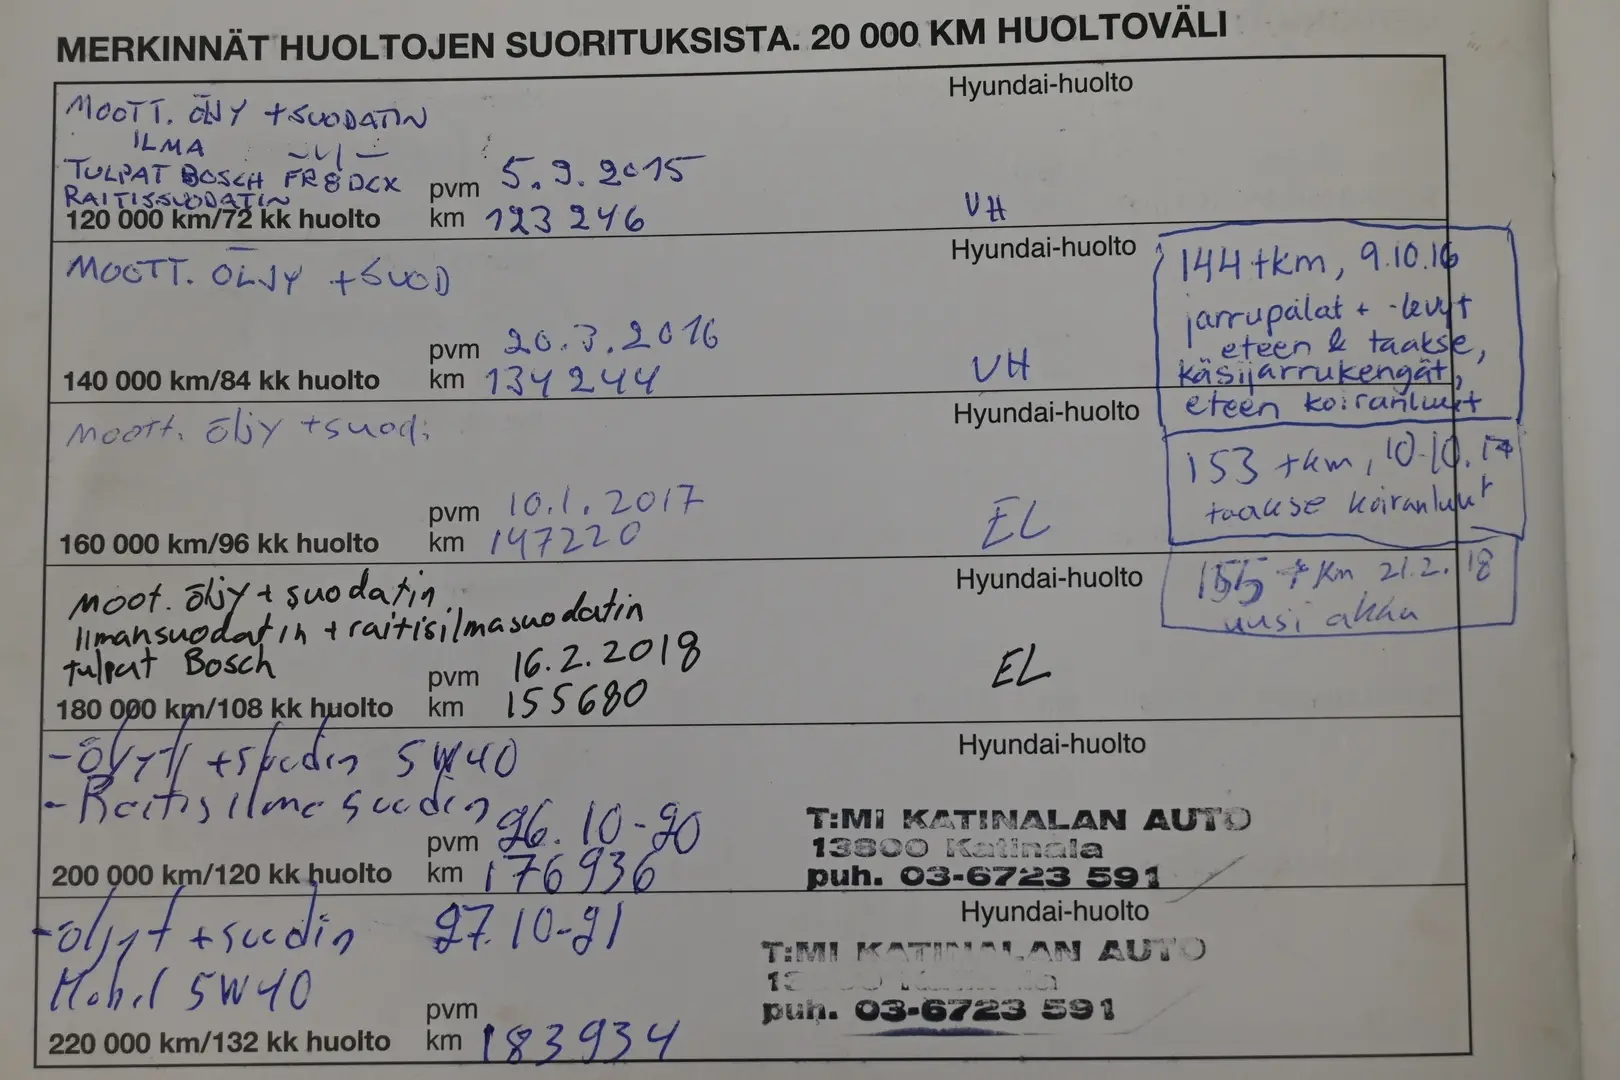 MERKINNÄT HUOLTOJEN SUORITUKSISTA. 20 000 KM HUOLTOVÄLI
Hyundai-huolto
MOOTT. ÖLJY +SUODATIN
ILMA —"—
TULPAT BOSCH FR8DCX
RAITISSUODATIN
pvm 5.9.2015
120 000 km/72 kk huolto
km 123 246
VH
Hyundai-huolto
MOOTT. ÖLJY +SUOD
pvm 20.3.2016
140 000 km/84 kk huolto
km 134244
VH
144 tkm, 9.10.16
jarrupalat + -levyt
eteen & taakse,
käsijarrukengät,
eteen koiranluut
Hyundai-huolto
Moott. öljy +suod.
pvm 10.1.2017
160 000 km/96 kk huolto
km 147220
EL
153 tkm, 10.10.17
taakse koiranluut
Hyundai-huolto
moot. öljy + suodatin
Ilmansuodatin + raitisilmasuodatin
tulpat Bosch
pvm 16.2.2018
180 000 km/108 kk huolto
km 155680
EL
155 tkm 21.2.18
uusi akku
Hyundai-huolto
-öljyt +suodin 5W40
- Raitisilmasuodin
pvm 26.10-20
200 000 km/120 kk huolto
km 176936
T:MI KATINALAN AUTO
13800 Katinala
puh. 03-6723 591
Hyundai-huolto
-öljyt +suodin
27.10-21
Mobil 5W40
pvm
220 000 km/132 kk huolto
km 183934
T:MI KATINALAN AUTO
puh. 03-6723 591